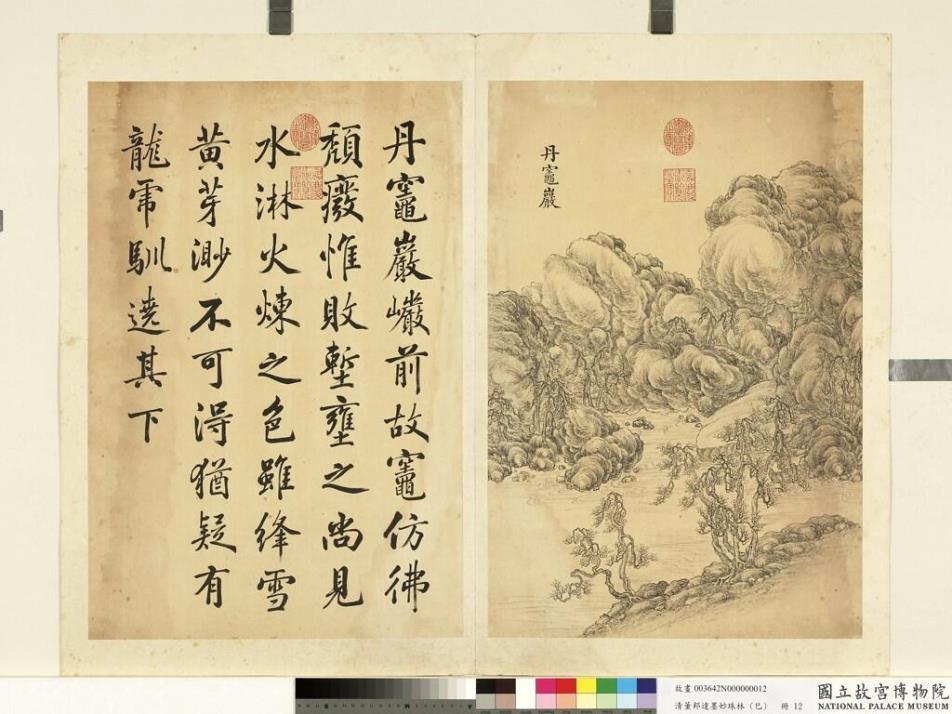 丹竈巖
丹竈巖巗前故竈仿彿
頹癈惟敗塹壅之尚見
水淋火煉之色雖絳雪
黄芽渺不可淂猶疑有
龍虎馴遶其下
故畫 003642N000000012
清董邦達墨妙珠林(巳) 冊 12
國立故宮博物院
NATIONAL PALACE MUSEUM